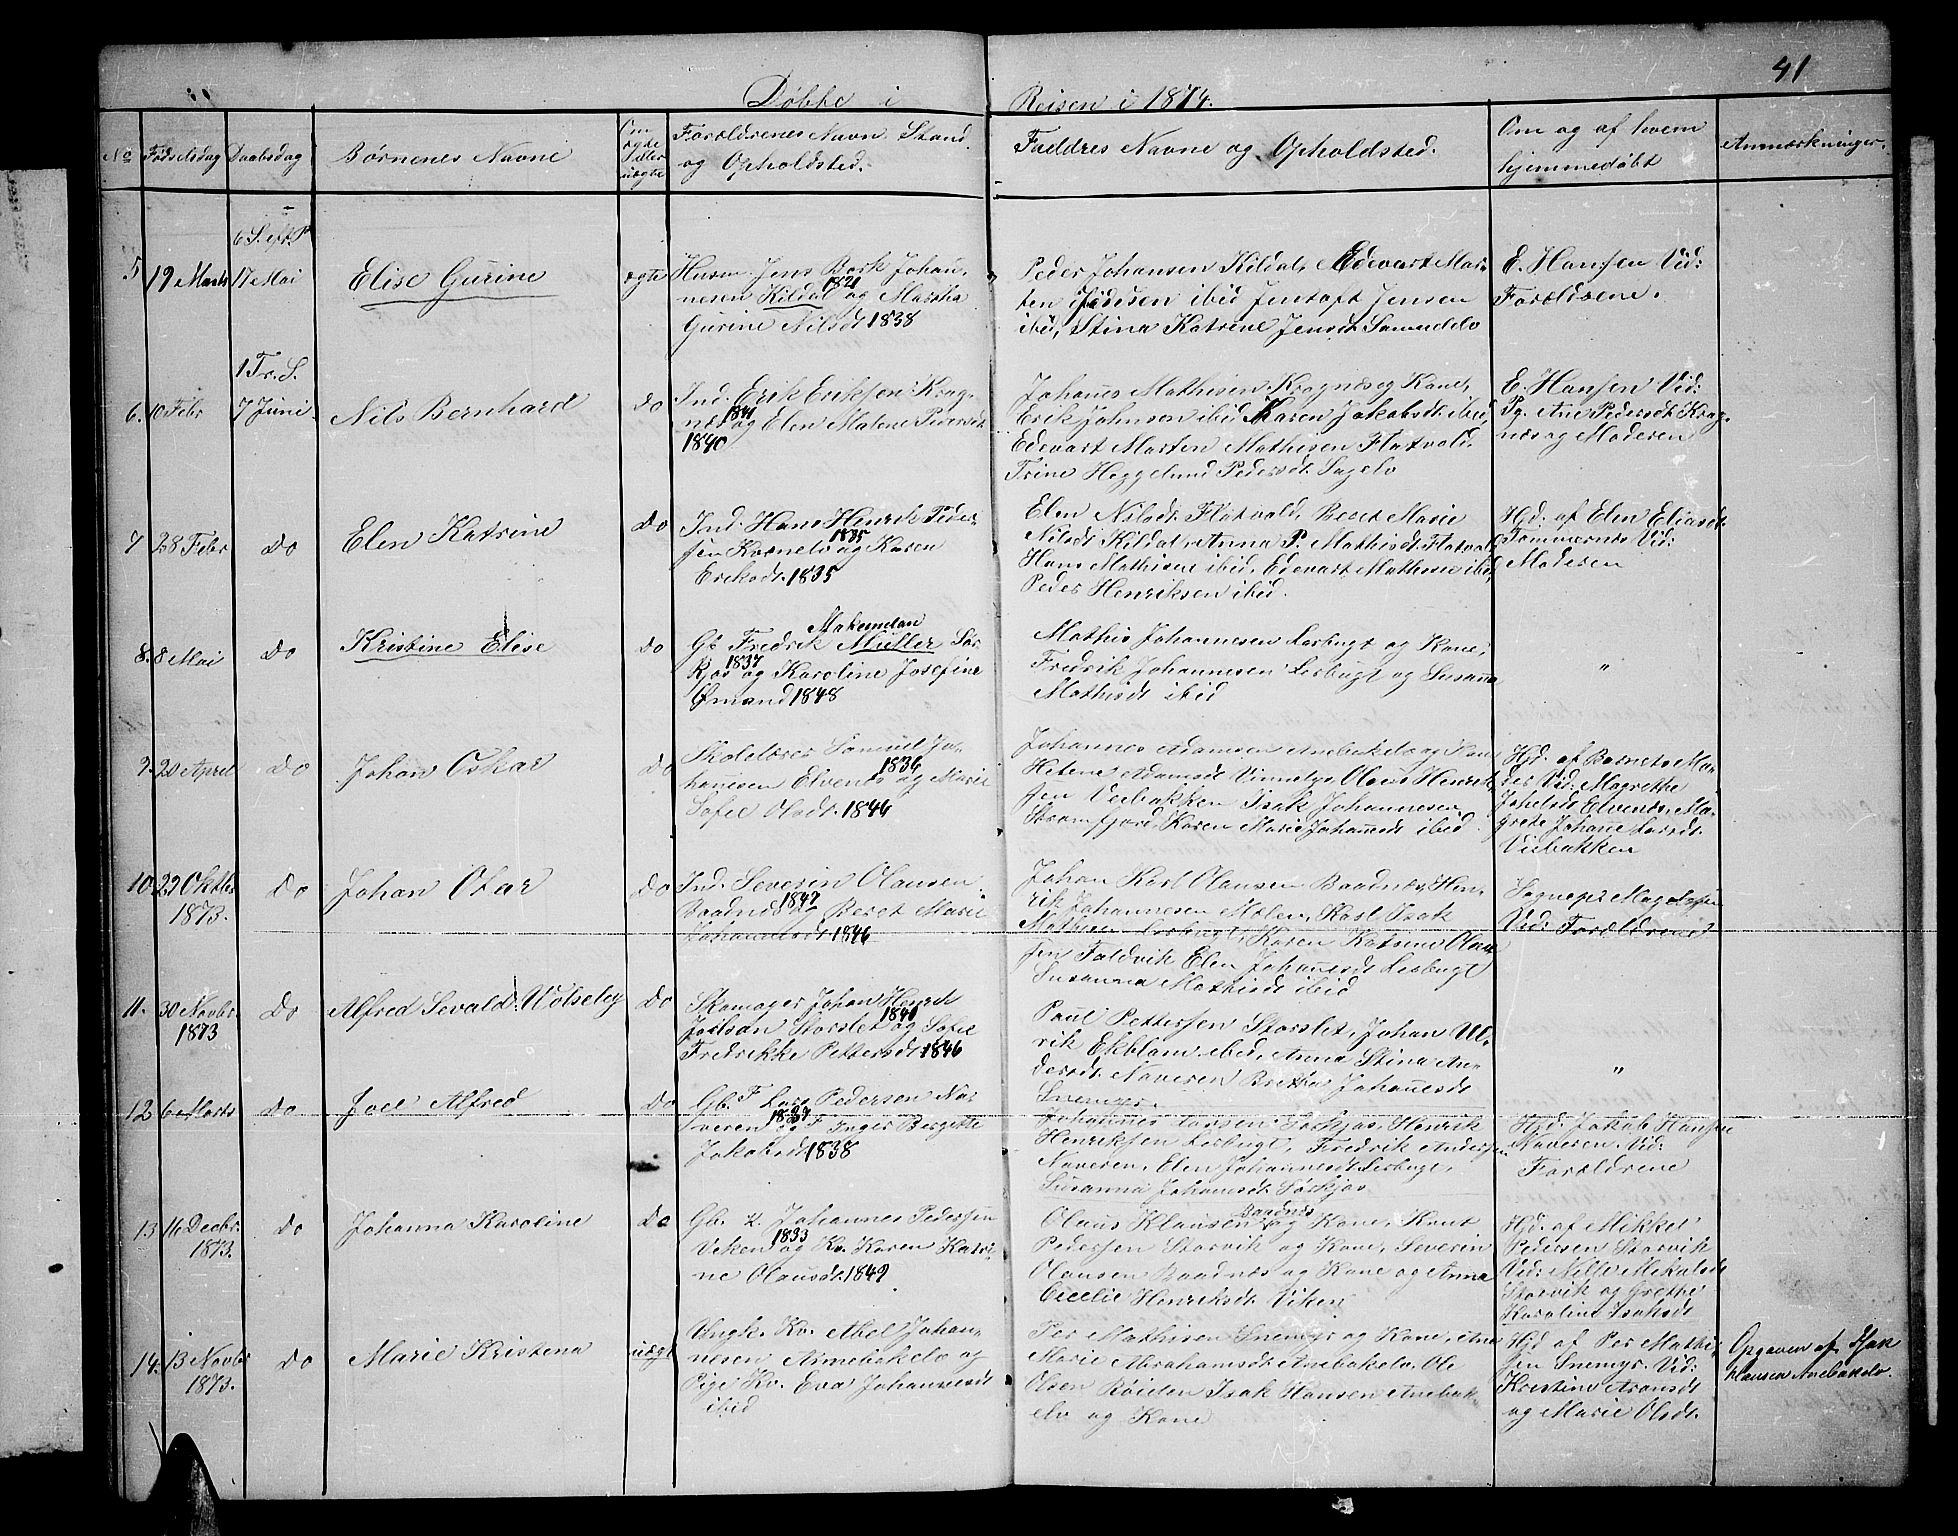 41
Døbte i Reisen i 1874.
No
Fødselsdag
Daabsdag
Børnenes Navne
Om ægte eller uægte
Forældrenes Navn, Stand
og Opholdsted.
Faddres Navne og Opholdsted.
Om og af hvem
hjemmedøbt
Anmærkninger.
6 S. eft. P.
5 19 Marts 17 Mai Elise Gurine ægte
Husm. Jens Bark Johan-
nesen Kildal 1821 og Martha
Gurine Nilsdt. 1838
Peder Johansen Kildal, Edevart Mor-
ten ibid, Jentoft Jensen
ibid, Stina Katrine Jensdt.
E. Hansen Vid:
Forældrene.
1 Tr. S.
6. 10 Febr 7 Juni. Nils Bernhard do
Ind. Erik Eriksen Krag-
næs 1841 og Elen Malene Pedersdt.
1840
Johannes Mathisen Kragnæs og Kone,
Erik Johnsen ibid, Karen Jakobsdt. ibid,
Edevart Morten Mathisen Flatvold,
Trine Heggelund Pedersdt. Sagelv
E. Hansen Vid:
Pg. Ane Pedersdt. Krag-
næs og Moderen
7 28 Febr do Elen Katrine do
Ind. Hans Henrik Peder-
sen Kornelv 1835 og Karen
Eriksdt. 1835
Elen Nilsdt. Flatvold, Beret Marie
Nilsdt. Kildal, Anna P. Mathisdt. Flatvold,
Hans Mathisen ibid, Edevart Mathisen ibid,
Peder Henriksen ibid.
Hjd. af Elen Eliasdt.
Tømmernæs Vid:
Moderen
8. 8 Mai do Kristine Elise do
Gb. Fredrik Müller Sør-
kjos 1837 og Karoline Josefine
Ømand 1848
Mathis Johannesen Lerbugt og Kone,
Fredrik Johannesen Lerbugt og Susanna
Mathisdt. ibid
"
9. 20 April do Johan Oskar do
Skolelærer Samuel Jo-
hannesen Elvenes 1836 og Marie
Sofie Olsdt. 1846
Johannes Adamsen Anebakelv og Kone
Helene Adamsdt. Vinnelys, Olaus Henrik-
sen Veibakken, Isak Johannesen
Straumfjord, Karen Marie Johannesdt. ibid
Hjd. af Barnets Mo-
der Vid. Magrethe
Elvenæs, Ma-
grete Johanne Larsdt.
Veibakken
10. 29 Oktbr. 1873. do Johan Otar do
Ind. Severin Olausen
Baadnæs 1847 og Beret Marie
Johannesdt. 1846
Johan Karl Olausen Baadnæs, Hen-
rik Johannesen Molen, Karl Isak
Mathisen Lerbugt, Karen Katrine Olau-
sen Faldvik, Elen Johannesdt. Lerbugt
Susanna Mathisdt. ibid
Vid: Forældrene
11. 30 Novbr. 1873 do Alfred Sevald Volseley do
Skomager Johan Henrik
Storslet 1841 og Sofie
Fredrikke Pettersdt. 1846
Paul Pettersen Storslet, Johan Ul-
rik Ekblom ibid, Anna Stina An-
dersdt. Naveren Bretha Johannesdt.
Snemyr
"
12 6 Marts do Joel Alfred do
Gb. F. Lars Pedersen Na-
veren 1837 og F. Inger Bergitte
Jakobsdt. 1838
Johannes Larsen Sørkjos, Henrik
Henriksen Lerbugt, Fredrik Andersen
Naveren, Elen Johannesdt. Lerbugt,
Susanna Johannesdt. Sørkjos
Hjd. Jakob Hansen
Naveren. Vid:
Forældrene
13 16 Decbr. 1873. do Johanna Karoline do
Gb. K. Johannes Pedersen
Viken 1833 og Kv. Karen Katri-
ne Olausdt. 1849
Olaus Klausen Baadnæs og Kone, Knut
Pedersen Storvik og Kone, Severin
Olausen Baadnæs og Kone og Anna
Cecelie Henriksdt. Viken
Hjd. af Mikkel
Pedersen Storvik
Vid: Nille Mikalsdt.
Storvik og Grethe
Karoline Isaksdt.
14. 13 Novbr 1873. do Marie Kristena uægt
Ungk. Kv. Abel Johan-
nesen Annebakelv og
Pige Kv. Eva Johannesdt.
ibid
Per Mathisen Snemyr og Kone, Ane
Marie Abrahamsdt. Anebakelv, Ole
Olsen Røiden, Isak Hansen Anebak-
elv og Kone
Hjd af Per Mathi-
sen Snemyr. Vid:
Kristine Aronsdt.
og Marie Olsdt.
Opgaven af Isak
Hansen Anebakelv.